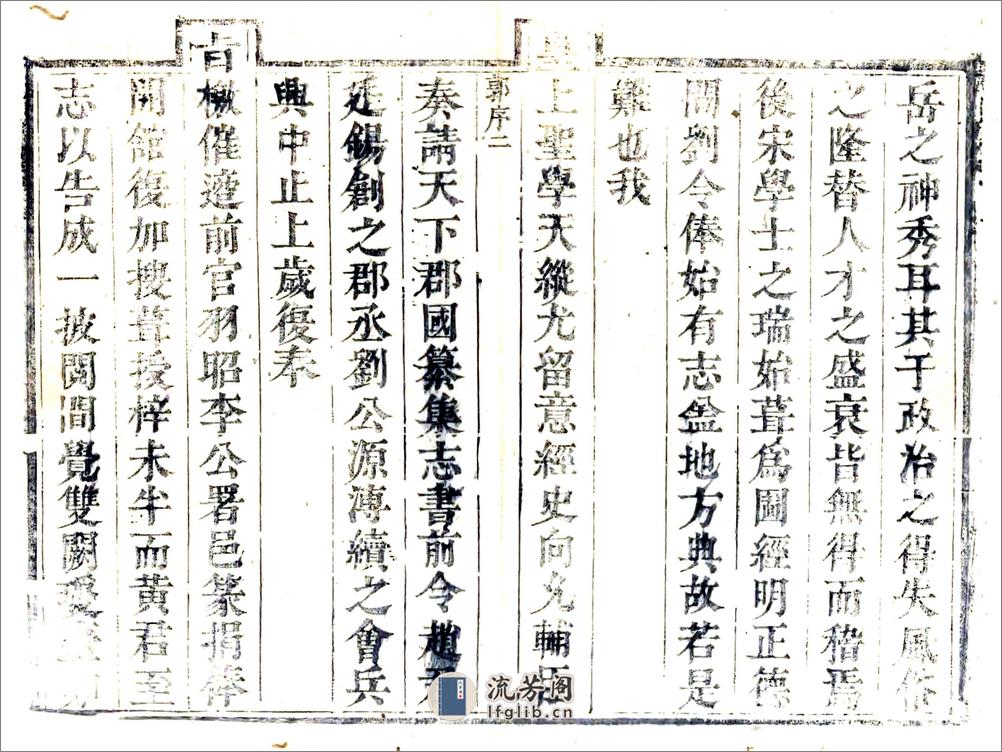 岳之神秀耳其于政治之得失風俗
之隆替人才之盛衰皆無得而稽焉
後宋學士之瑞始葺為圖經明正德
間劉令俸始有志盖地方典故若是
難也我
皇上聖學天縱尤留意經史向允輔臣
郭序二
奏請天下郡國纂集志書前令趙君
廷錫創之郡丞劉公源溥續之會兵
興中止上歲復奉
旨檄催遴前官羽昭李公署邑篆捐俸
開館復加搜葺授梓未半而黃君至
志以告成一披閱間覺雙闕
流芳阁
lfglib.cn